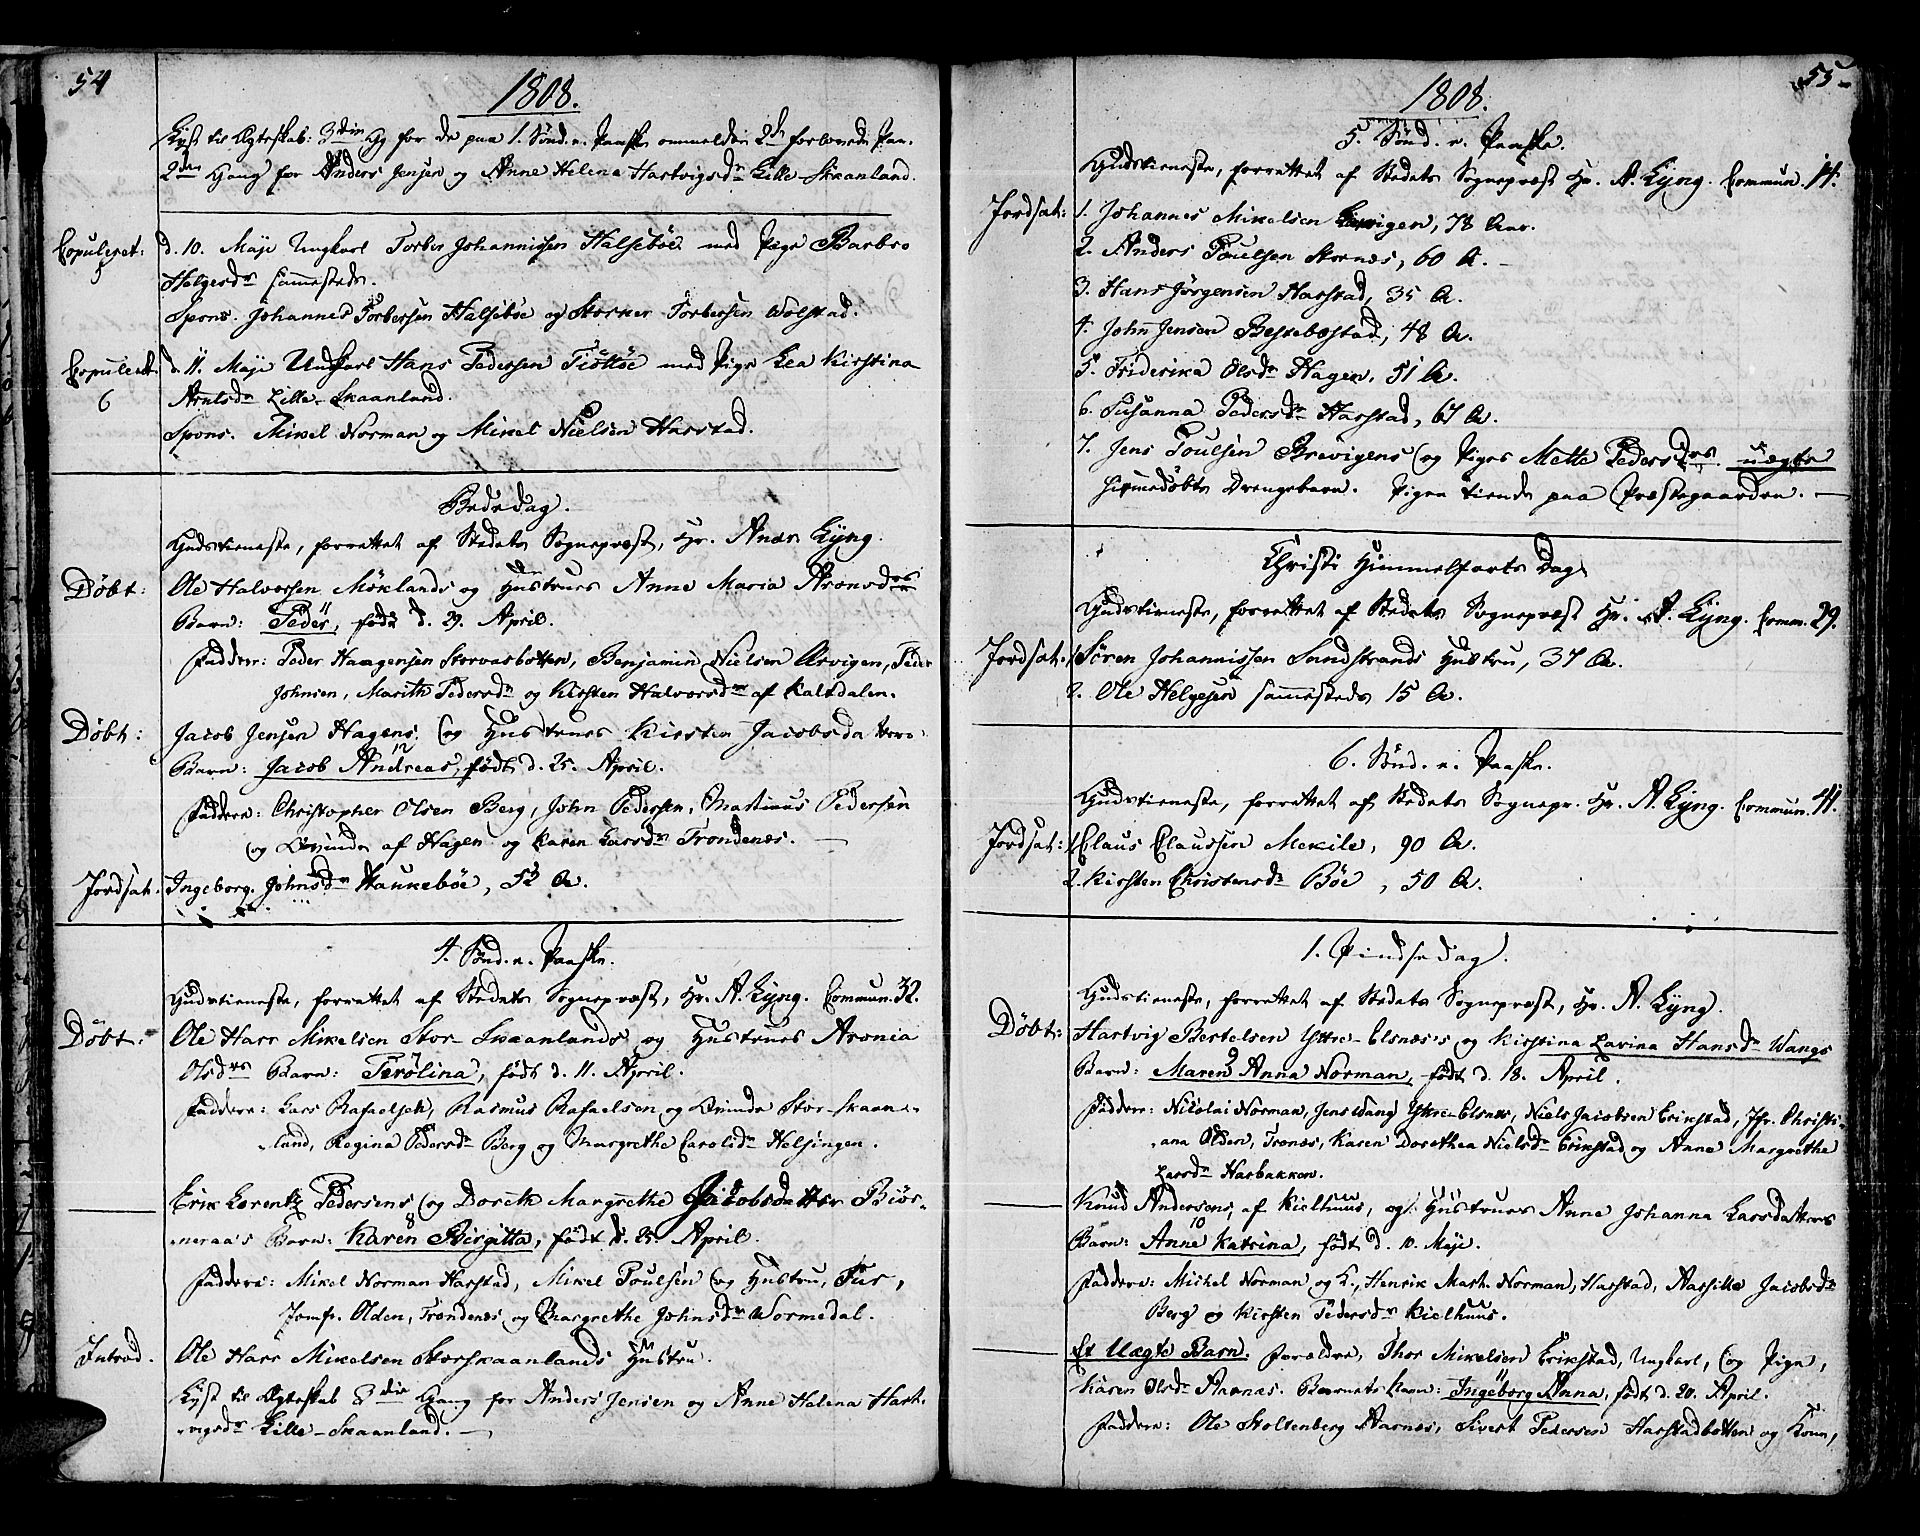 54
1808.
Lyst til Ægteskab: 3die Gg for de paa 1. Sønd. e. Paaske anmeldte 2de forlovede Par.
2den Gang for Anders Jensen og Anne Helena Hartvigsdr Lille-Skaanland.
Copuleret: d. 10. Maji Ungkarl Torber Johannissen Halsebøe med Pige Barbro
5
Helgesdr sammesteds.
Spons. Johannes Torbersen Halsebøe og Storker Torbersen Wolstad.
Copuleret: d. 11. Maji Ungkarl Hans Pedersen med Pige Lea Kirstina
6
Arntsdr Lille-Skaanland.
Spons. Mikel Norman og Mikel Nielsen Harstad.
Bededag.
Gudstieneste, forrettet af Stedets Sognepræst, Hr. Andr. Lyng.
Døbt: Ole Halvorsen Møklands og Hustrues Anne Maria Aronsdrs
Barn: Peder, føde d. 29. April.
Faddere: Peder Haagensen Storvasbotten, Benjamin Nielsen Ervigen, Peder
Johnsen, Marith Pedersdr og Kirsten Halvorsdr af Kaltdalen.
Døbt: Jacob Jensen Hagens og Hustrues Kirsten Jacobsdatters
Barn: Jacob Andreas, født d. 25. April.
12
Faddere: Christopher Olsen Berg, John Pedersen, Martinus Pedersen
og Qvinde af Hagen og Karen Larsdr Trondenæs.
Jordsat. Ingeborg Johnsdr Haukebøe, 52 A.
4. Sønd. e. Paaske.
Gudstieneste, forrettet af Stedets Sognepræst, Hr. A. Lyng. Commun. 32.
Døbt: Ole Harr Mikelsen Stor-Skaanlands og Hustrues Aronia
Olsdrs Barn: Perølina, født d. 11. April.
Faddere: Lars Rafaelsen, Rasmus Rafaelsen og Qvinde Stor-Skaan-
land, Regina Pedersdr Berg og Margrethe Carolidr Helsingen.
Erik Lorentz Pedersens og Doreth Margrethe Jacobsdatter Biør-
neraa's Barn: Karen Birgitta, født d. 25. April.
8
Faddere: Mikel Norman Harstad, Mikel Poulsen og Hustru,
Jomfr. Olden, Trondenæs og Margrethe Johnsdr Wormedal.
Introd. Ole Harr Mikelsen Storskaanlands Hustru.
Lyst til Ægteskab 3die Gang for Anders Jensen og Anne Helena Hart-
vigsdr Lille-Skaanland.
55
1808.
5. Sønd. e. Paaske.
Gudstieneste, forrettet af Stedets Sognepræst Hr. A. Lyng. Commun. 14.
Jordsat: 1. Johannes Mikelsen Ervigen, 78 Aar.
2. Anders Poulsen Stornæs, 60 A.
3. Hans Jørgensen Harstad, 35 A.
4. John Jensen Bestebostad, 48 A.
5. Friderika Olsdr Hagen, 51 A.
6. Susanna Pedersdr Harstad, 67 A.
7. Jens Poulsen Brevigens og Piges Mette Pedersdrs uægte
hiemedøbte Drengebarn. Pigen tiende paa Præstegaarden.
Christi Himmelfarts Dag
Gudstieneste, forrettet af Stedets Sognepræst Hr. A. Lyng. Comm. 29.
Jordsat: 1. Søren Johannissen Sandstrands Hustru, 37 A.
2. Ole Helgesen sammesteds 15 A.
6. Sønd. e. Paaske.
Gudstieneste, forrettet af Stedets Sognepr. Hr. A. Lyng. Commun. 41.
Jordsat: 1. Claus Claussen Mekile, 90 A.
2. Kirsten Christensdr Bøe, 50 A.
1. Pindsedag.
Gudstieneste, forrettet af Stedets Sognepræst, Hr. A. Lyng.
Døbt: Hartvig Bertelsen Yttre-Elsnæs's og Kirstina Lavina Hansdr Wangs
Barn: Maren Anna Norman, født d. 18. April.
9
Faddere: Nikolai Norman, Jens Wang Yttre-Elsnæs, Niels Jacobsen Erikstad, Jfr. Christi-
ana Olden, Tronæs, Karen Dorothea Nielsdr Erikstad og Anne Margrethe
Larsdr Harbakken.
Knud Andersens af Kielhuus, og Hustrues Anne Johanna Larsdatters
Barn: Anne Katrina, født d. 10. Maji.
10
Faddere: Michel Norman og K., Henrik Math. Norman, Harstad, Aasille Jacobsdr
Berg og Kirsten Pedersdr Kielhuus.
Et Uægte Barn. Forældre, Thor Mikelsen Erikstad, Ungkarl, og Pige,
Karen Olsdr Aarnæs. Barnets Navn: Ingeborg Anna, født d. 20. April.
11
Faddere: Ole Stoltenberg Aarnæs, Sivert Pedersen Harstadbotten og Kone,